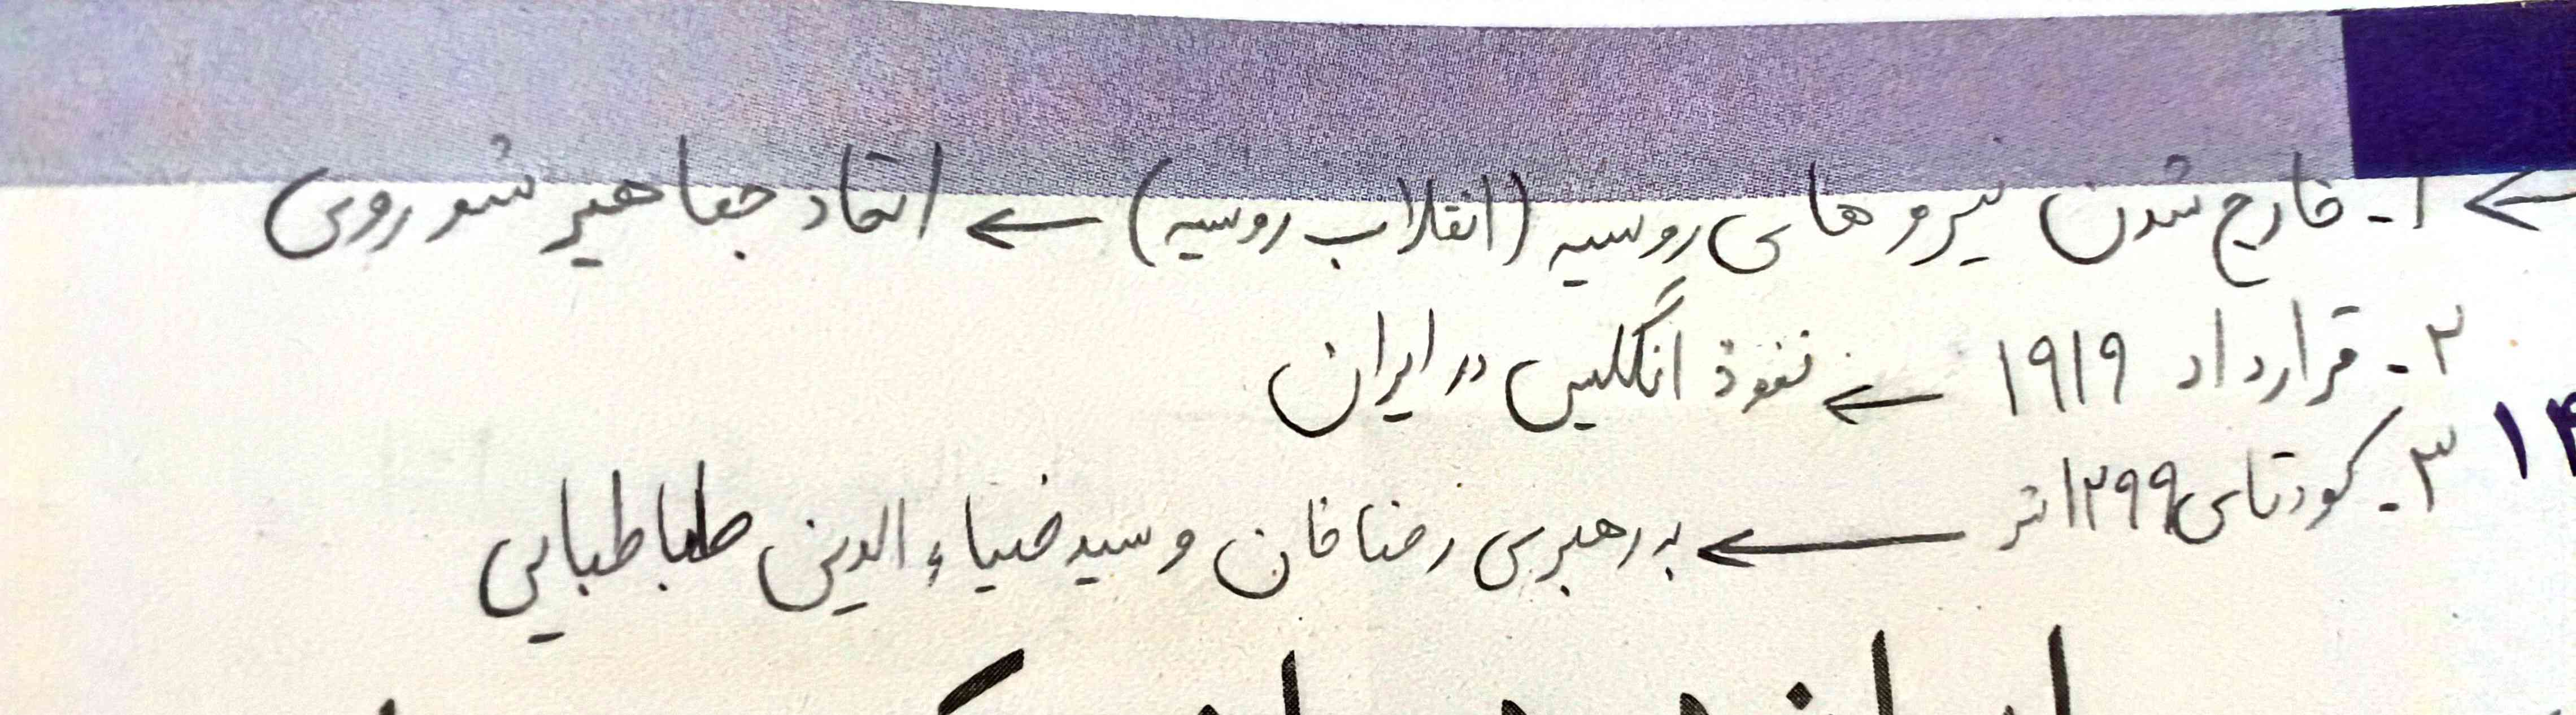 ← ۱- خارج شدن نیروهای روسیه (انقلاب روسیه) ← اتحاد جماهیر شوروی
۲- قرارداد ۱۹۱۹ ← نفوذ انگلیس در ایران
۳- کودتای ۱۲۹۹ ← به رهبری رضاخان و سید ضیاء الدین طباطبایی